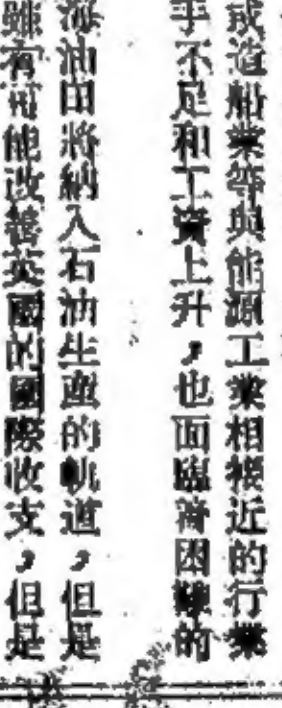 或造船業等與能源工業相接近的行業
手不足和工資上升，也面臨着困難的
海油田將納入石油生產的軌道，但是
雖有可能改善英國的國際收支，但是